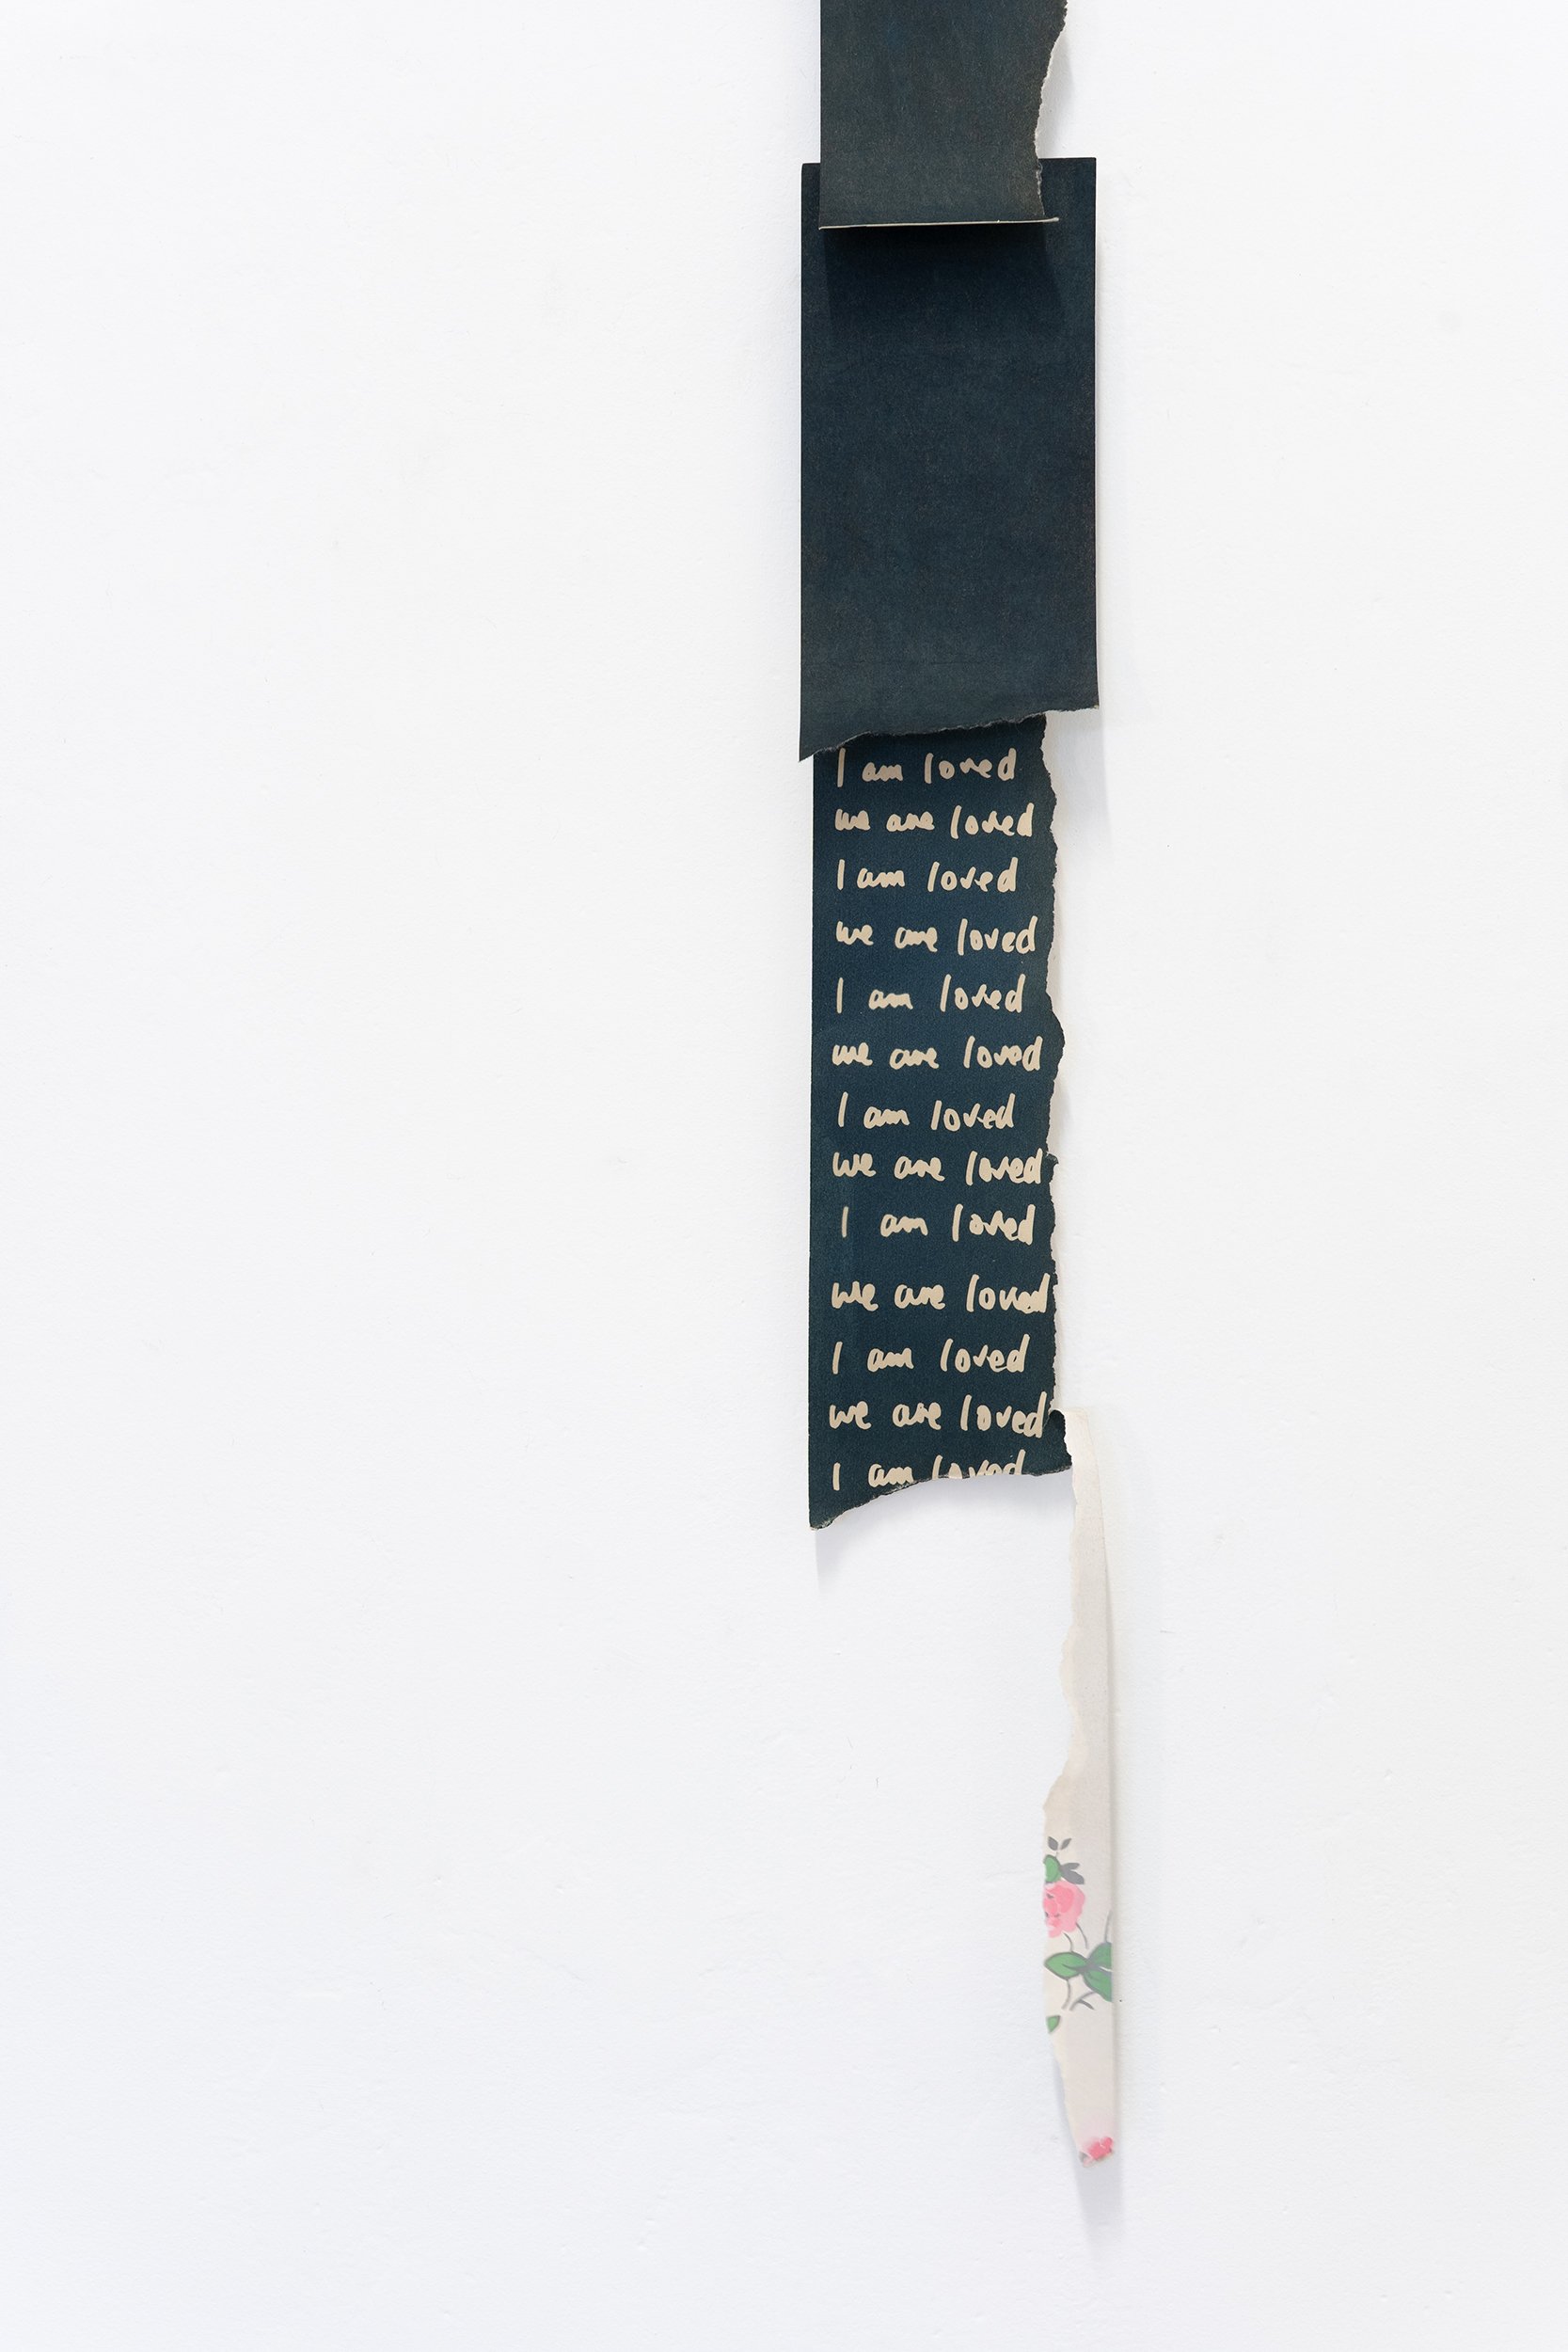 I am loved
we are loved
I am loved
we are loved
I am loved
we are loved
I am loved
we are loved
I am loved
we are loved
I am loved
we are loved
I am loved